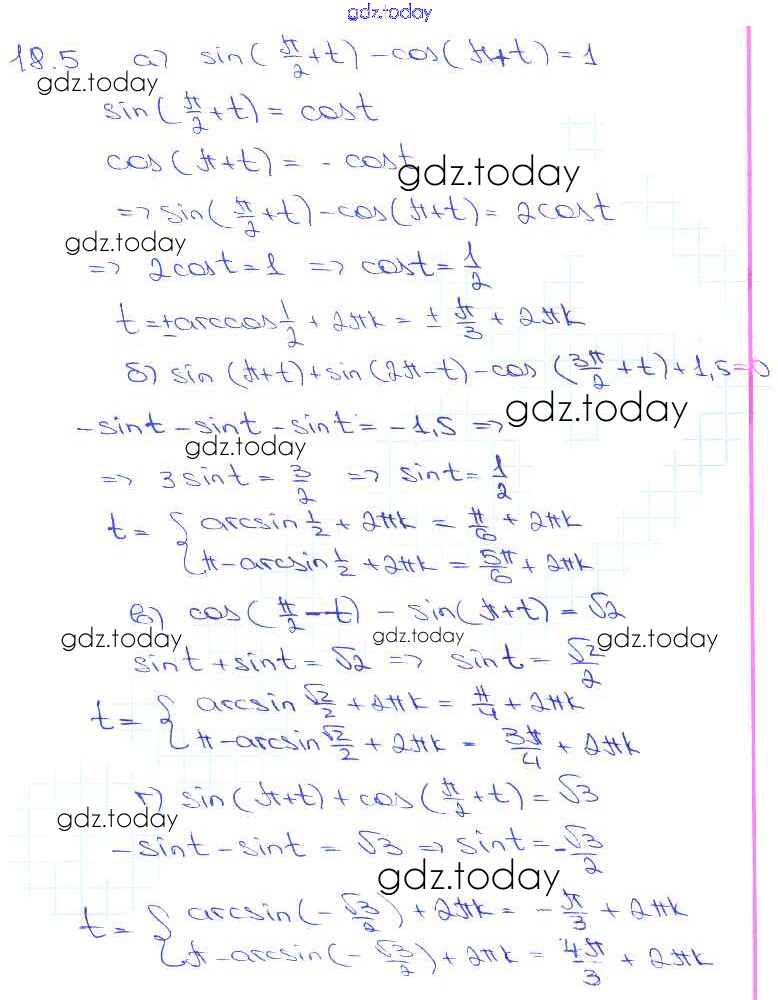 gdz.today
18.5 а) sin(π/2+t) -cos(π+t)=1
gdz.today
sin(π/2+t)= cost
cos(π+t)= - cost
gdz.today
=> sin(π/2+t)-cos(π+t)= 2cost
gdz.today
=> 2cost=1 => cost=1/2
t=±arccos1/2 + 2πk = ± π/3 + 2πk
б) sin (π+t)+sin(2π-t)-cos (3π/2+t)+1,5=0
gdz.today
-sint-sint-sint=-1,5 =>
gdz.today
=> 3sint= 3/2 => sint=1/2
t= { arcsin1/2 + 2πk = π/6 + 2πk
π-arcsin1/2 +2πk = 5π/6 + 2πk
в) cos(π/2-t) - sin(π+t) = √2
gdz.today gdz.today gdz.today
sint+sint=√2 => sint= √2/2
t= { arcsin √2/2 +2πk = π/4 + 2πk
π-arcsin √2/2 + 2πk = 3π/4 + 2πk
г) sin(π+t)+cos(π/2+t)=√3
gdz.today
-sint-sint = √3 => sint=-√3/2
gdz.today
t= { arcsin(-√3/2)+2πk= -π/3 + 2πk
π-arcsin(-√3/2)+2πk = 4π/3 + 2πk